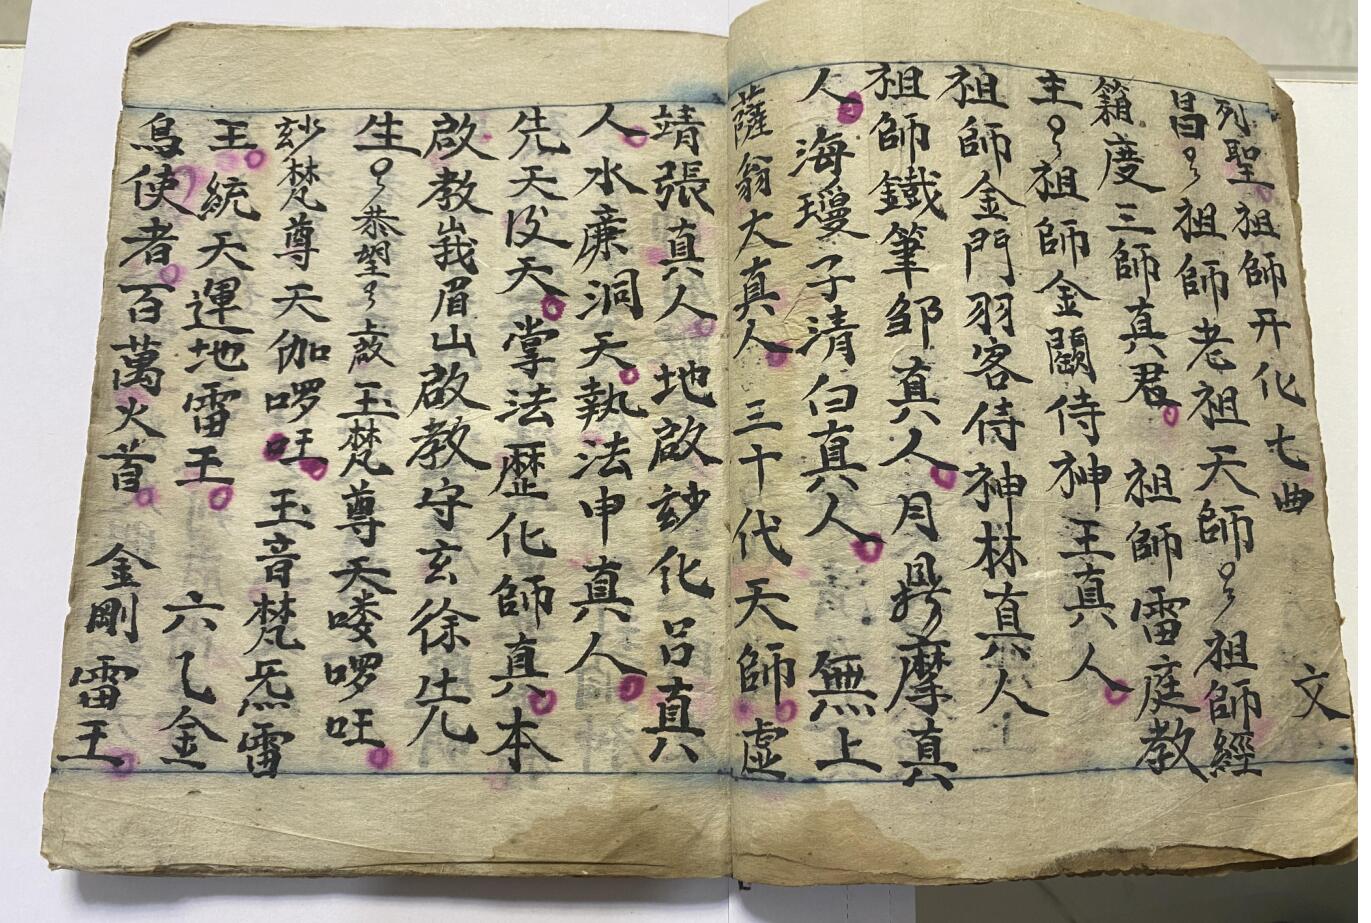 列聖祖師开化七曲文
昌〻祖師老祖天師〻祖師經
籙度三師真君 祖師雷庭教
主〻祖師金闕侍神王真人
祖師金門羽客侍神林真人
祖師鐵筆邹真人月鼎摩真
人 海瓊子清白真人 無上
薩翁大真人 三十代天師虚
靖張真人 地啟玅化吕真
人水亷洞天執法申真人
先天后天 掌法歷化師真本
啟教峩眉山啟教守玄徐先
生〻恭望〻上啟玉梵尊天唛啰吐
玅梵尊天伽啰吐 玉音梵炁雷
王 統天運地雷王 六乙金
烏使者百萬火首 金剛雷王